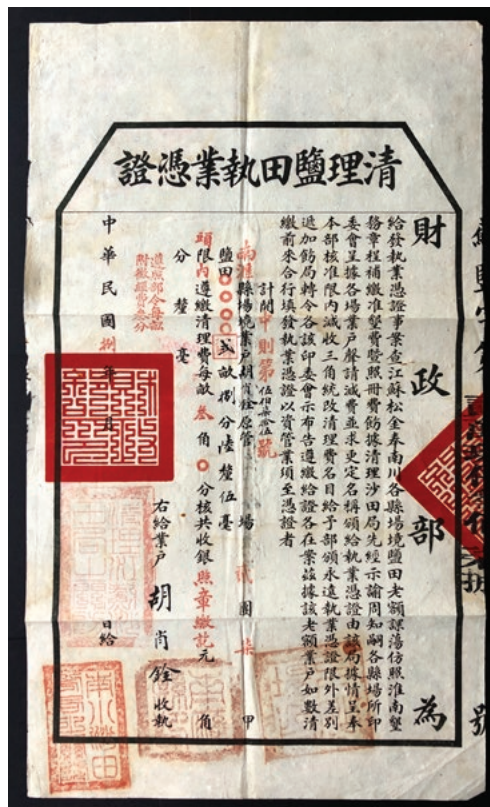 清理鹽田執業憑證
財政部為
給發執業憑證事案查江蘇松金奉南川各縣場境鹽田老額課蕩仿照淮南墾
務章程補繳准墾費暨照冊費飭據清理沙田局先經示諭周知嗣各縣場所印
委會呈據各場業戶聲請減費並求更定名稱頒給執業憑證由該局據情呈奉
本部核准限內減收三角統改清理費名目給予部頒永遠執業憑證限外差別
遞加飭局轉令各該印委會示布告遵繳給證各在案茲據該老額業戶如數清
繳前來合行填發執業憑證以資管業須至憑證者
計開中則第伍佰柒拾伍號
南匯縣場境業戶胡肖銓原管場貳團柒甲
鹽田〇〇〇〇貳畝捌分陸釐伍毫
頭限內遵繳清理費每畝叁角〇分核共收銀照章繳訖元角
分釐毫
遵照部令每畝
附繳經費叁分
右給業戶胡肖銓收執
中華民國捌年月日給